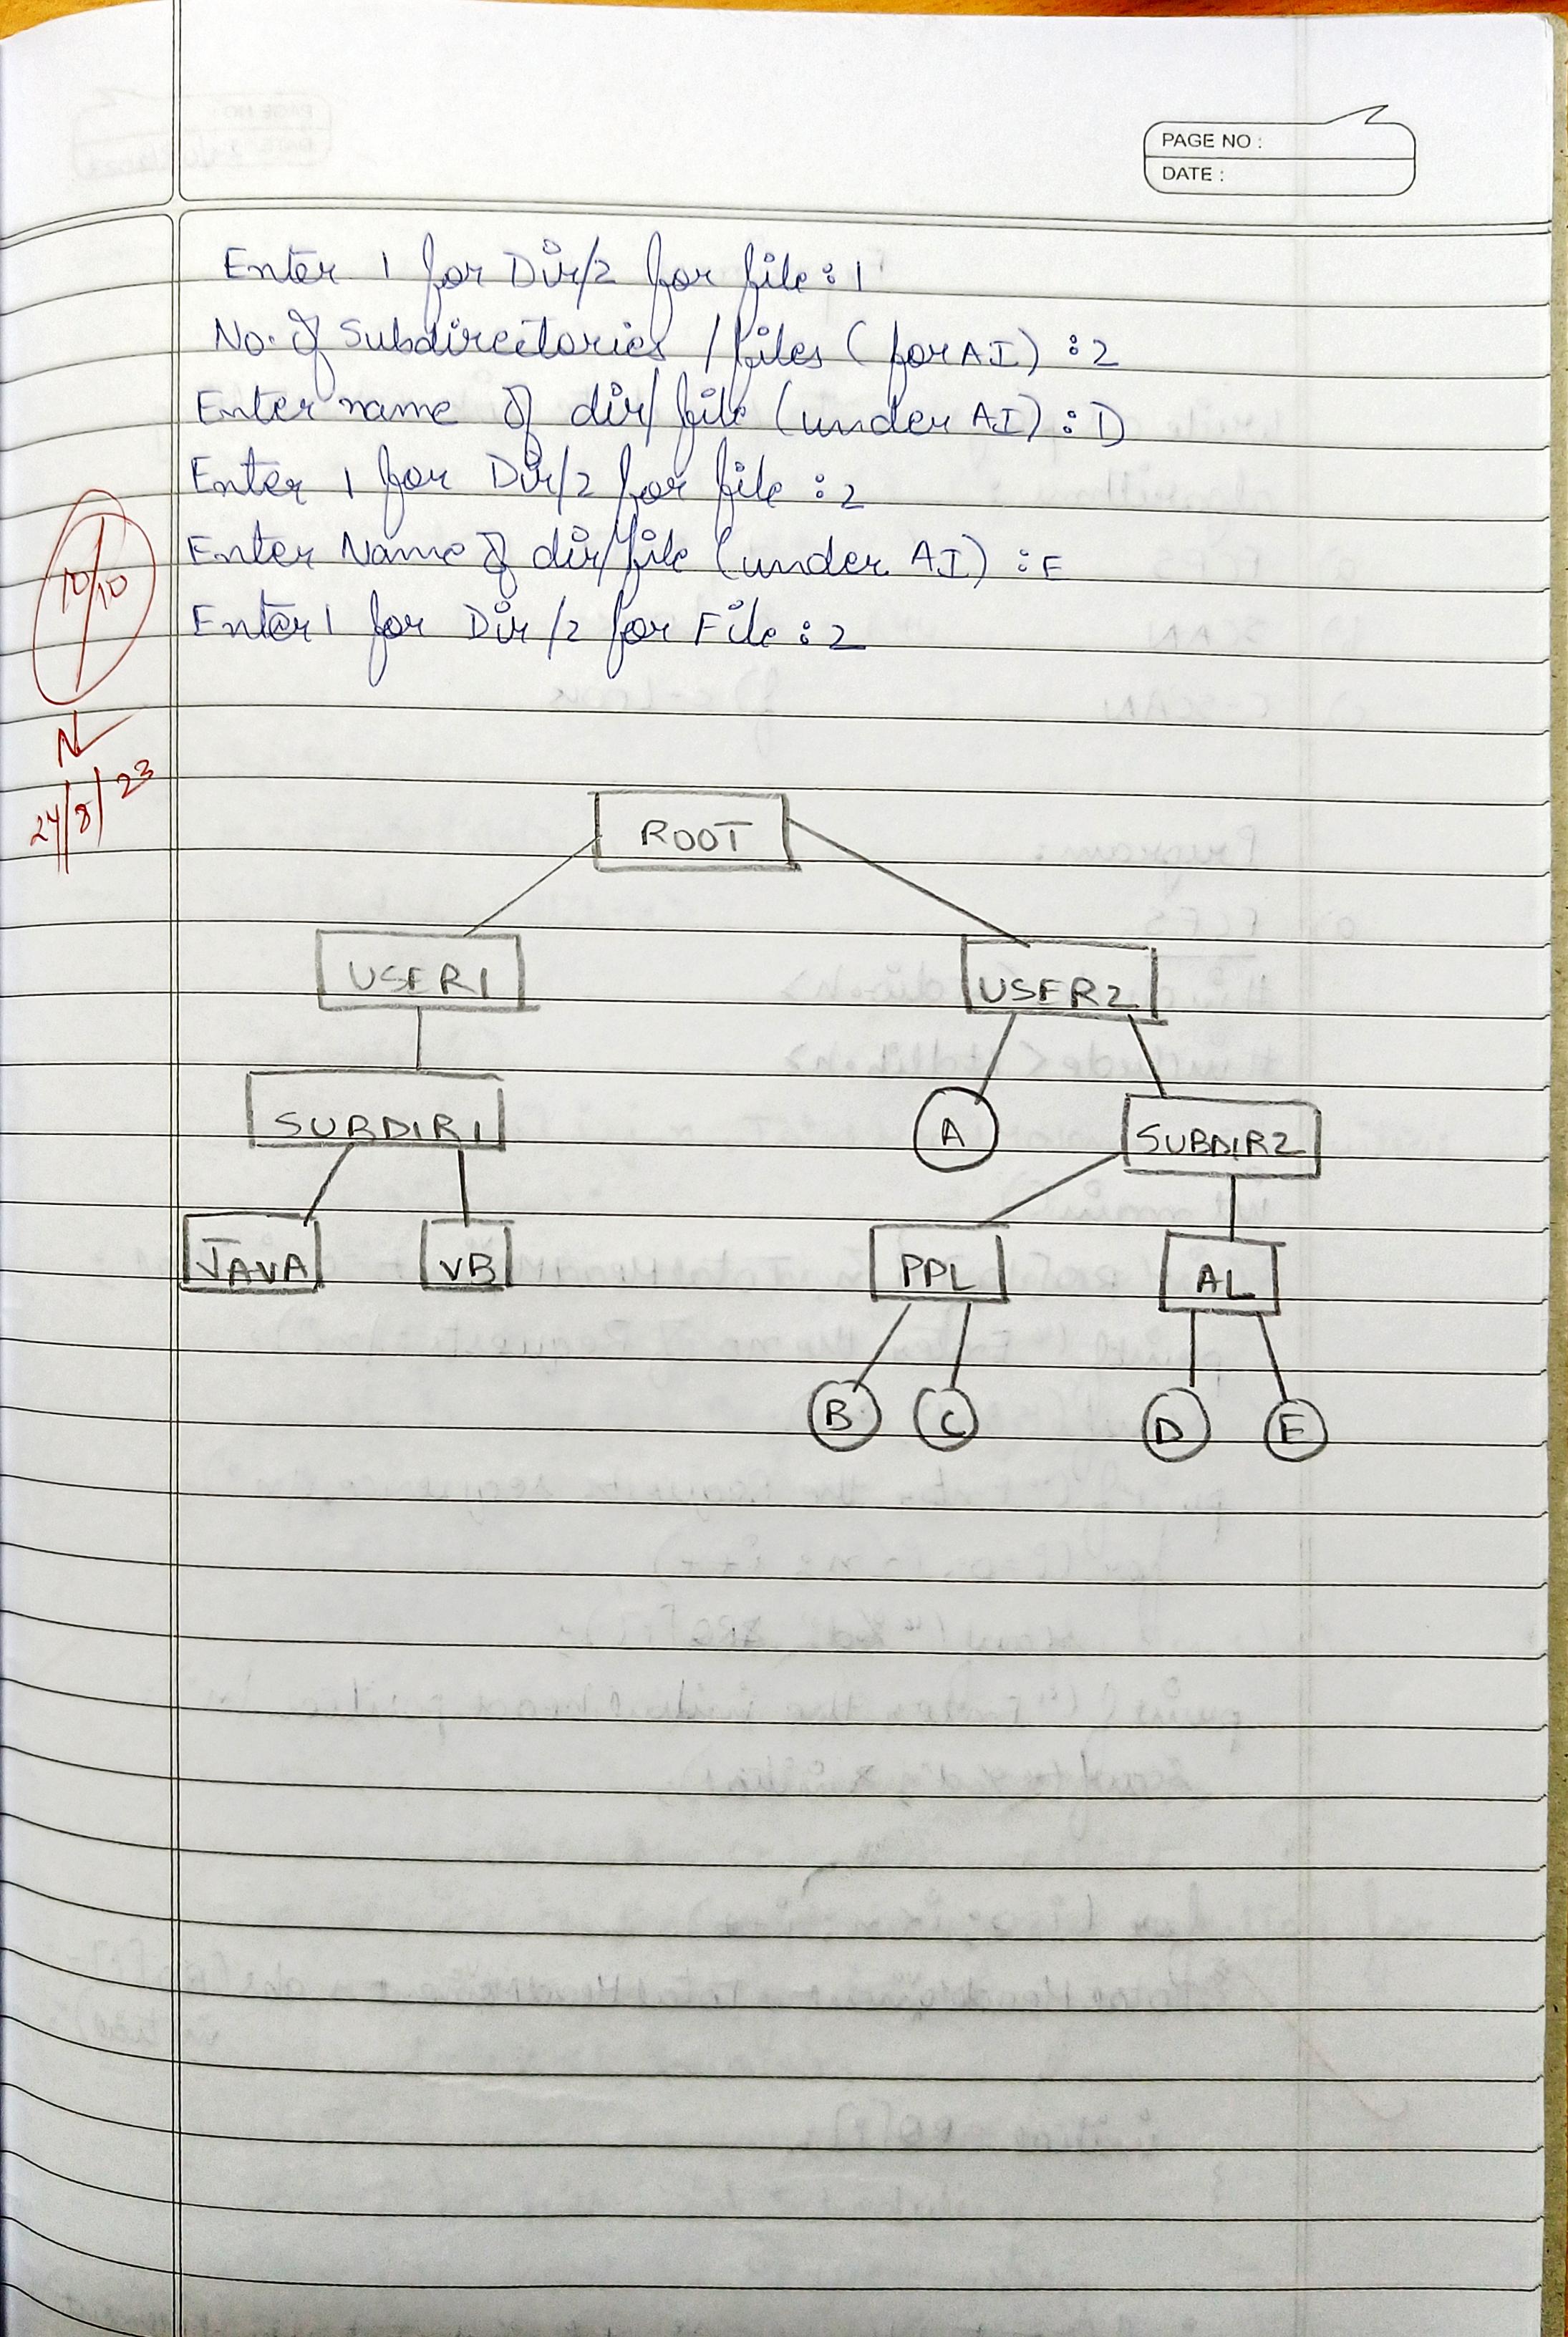 PAGE NO :
DATE :
Enter 1 for Dir/2 for file : 1
No. of Subdirectories / files (for AI) : 2
Enter name of dir/file (under AI) : D
Enter 1 for Dir/2 for file : 2
Enter Name of dir/file (under AI) : E
Enter 1 for Dir/2 for File : 2
10/10
24/8/23
ROOT
USER1 USER2
SUBDIR1 A SUBDIR2
JAVA VB PPL AL
B C D E